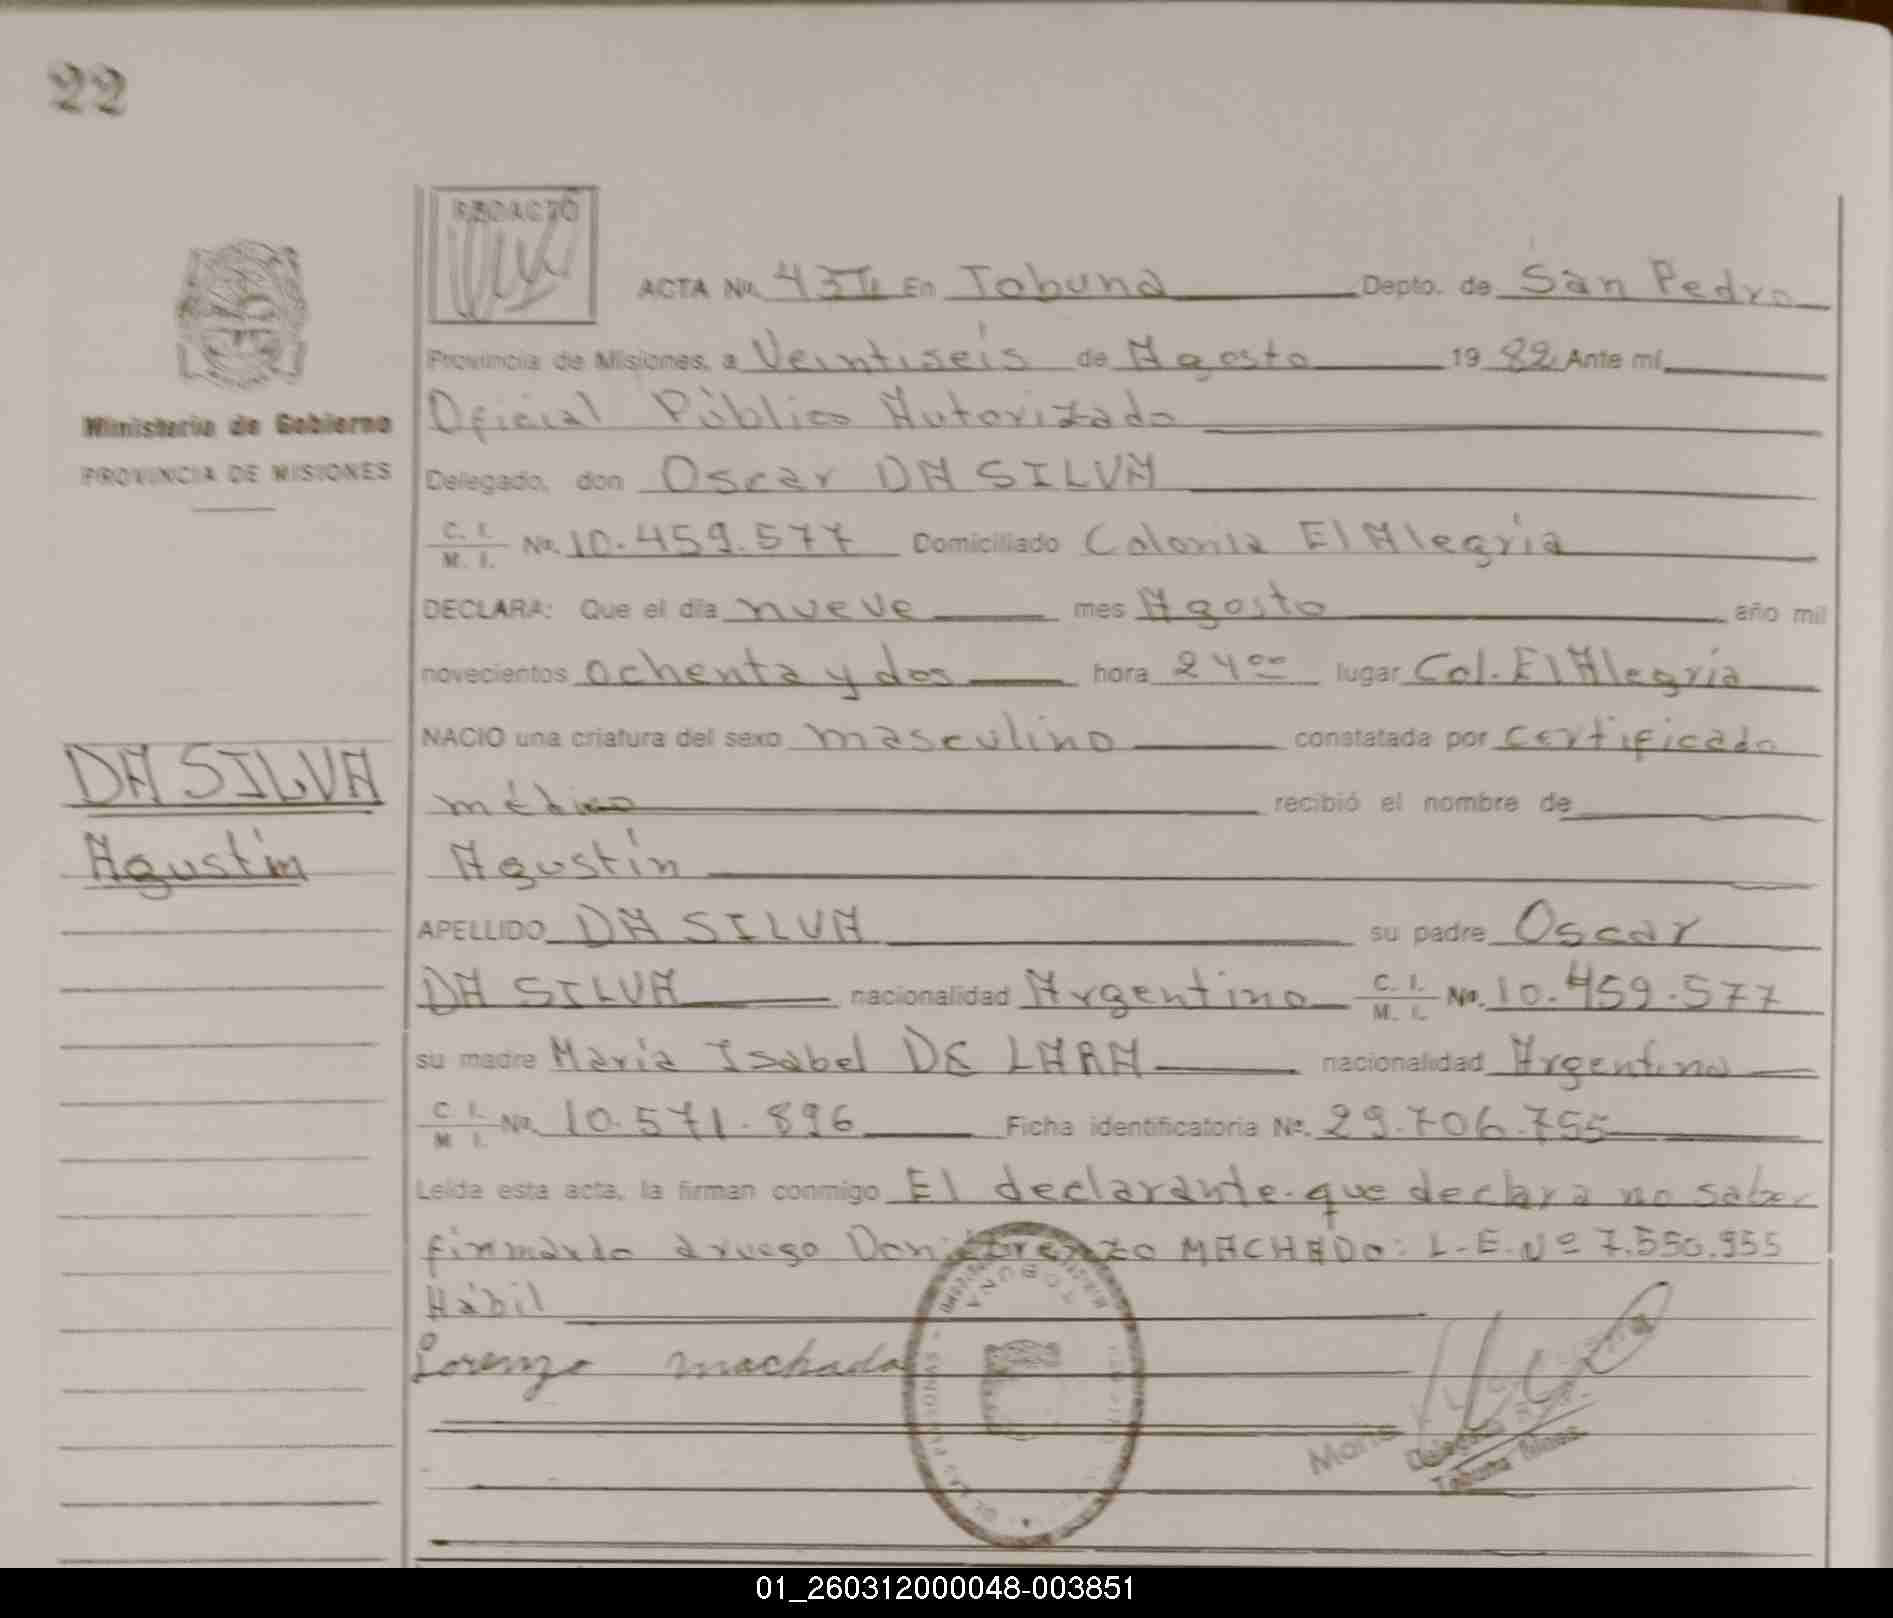 22
REDACTÓ
ACTA No. 43 II En Tobuna Depto. de San Pedro
Provincia de Misiones, a Veintiseis de Agosto 1982 Ante mí
Oficial Público Autorizado
Ministerio de Gobierno
PROVINCIA DE MISIONES
Delegado, don Oscar DA SILVA
C. I. M. I. No. 10.459.577 Domiciliado Colonia El Alegría
DECLARA: Que el día nueve mes Agosto año mil
novecientos ochenta y dos hora 24 oo lugar Col. El Alegría
NACIO una criatura del sexo masculino constatada por certificado
médico recibió el nombre de
DA SILVA
Agustín
Agustín
APELLIDO DA SILVA su padre Oscar
DA SILVA nacionalidad Argentino C. I. M. I. No. 10.459.577
su madre María Isabel DE LARA nacionalidad Argentina
C. I. M. I. No. 10.571.896 Ficha identificatoria No. 29.706.755
Leída esta acta, la firman conmigo El declarante que declara no saber
firmando a ruego Don Lorenzo MACHADO: L.E. Nº 7.550.955
Hábil
Lorenzo machado
TOBUNA
01_260312000048-003851